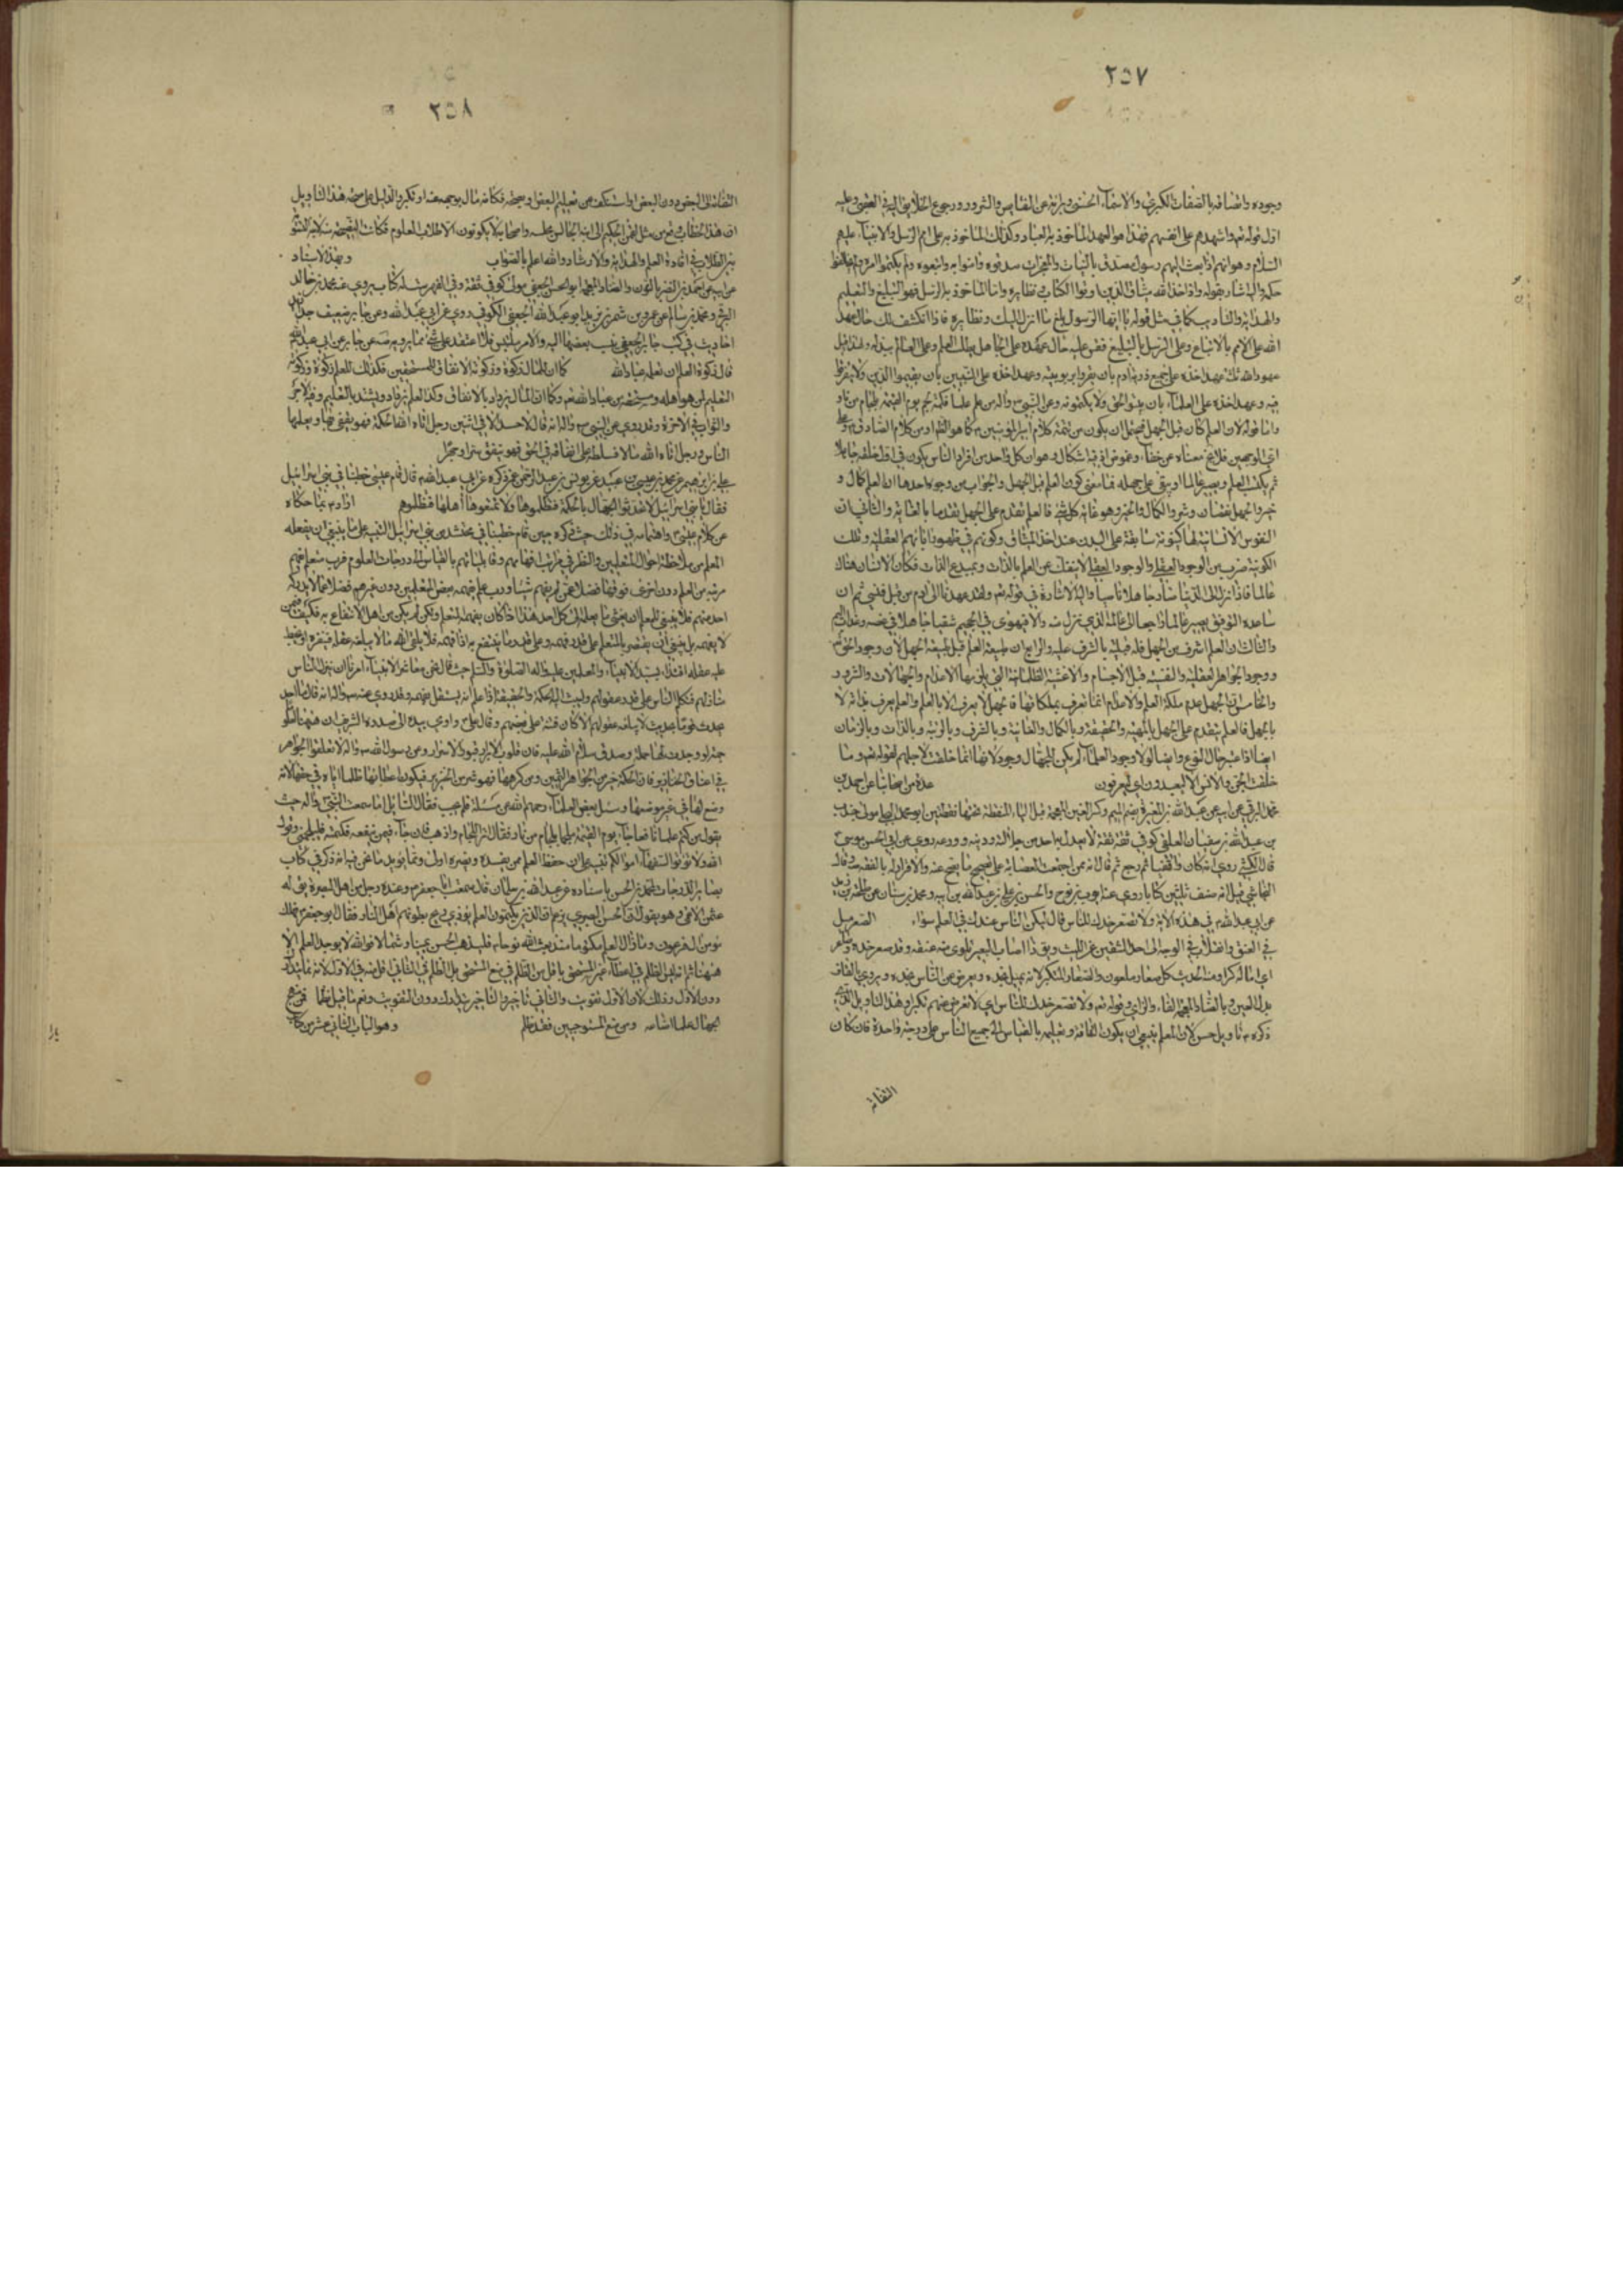 ٢٥٧
وجوده واتصافه بالصفات الكبرى والاسماء الحسنى وبراءته عن النقايص والشرور ورجوع الخلايق اليه في العقبى وعليه
اول قوله تعالى واشهدهم على انفسهم فهذا هو العهد المأخوذ به العباد وكذلك المأخوذ به على امم الرسل والانبياء عليهم
السلام وهو انهم اذا بعث اليهم رسول مصدق بالبينات والمعجزات صدقوه وامنوا به واتبعوه ولم يكتموا امره
حكمه واليه اشار بقوله واذ اخذ الله ميثاق الذين اوتوا الكتاب ونظايره واما المأخوذ به الرسل فهو التبليغ والتعليم
والهداية والتأديب كما في مثل قوله يا ايها الرسول بلغ ما انزل اليك ونظايره فاذا انكشف لك حال عهد
الله على الامم بالاتباع وعلى الرسل بالتبليغ فقس عليه حال عهده على الجاهل بطلب العلم وعلى العالم ببذله
عهود الله ثلثة عهد اخذه على جميع ذرية ادم بان يقروا بربوبيته وعهد اخذه على النبيين بان يقيموا الدين ولا يتفرقوا
فيه وعهد اخذه على العلماء بان يبينوا الحق ولا يكتمونه وعن النبي ص واله من علم علما فكتمه الجم يوم القيمة بلجام من نار
واما قوله لان العلم كان قبل الجهل فيحتمل ان يكون من تتمة كلام امير المؤمنين ع كما هو الظ او من كلام الصادق ع وعلى
اي الوجهين فلا يخ معناه عن خفاء وغموض اذ فيه اشكال وهو ان كل واحد من افراد الناس يكون في اول خلقه جاهلا
ثم يكتسب العلم ويصير عالما او يبقى على جهله فما معنى كون العلم قبل الجهل والجواب من وجوه احدها ان العلم كمال و
خير والجهل نقصان وشر والكمال والخير وهو غاية كل شئ فالعلم تقدم على الجهل تقدما بالغاية والثاني ان
النفوس الانسانية لها كينونة سابقة على البدن عند اخذ الميثاق وكونهم في ظهور ابائهم العقلية وتلك
الكينونة ضرب من الوجود العقلي والوجود العقلي لا ينفك عن العلم بالذات وبمبدع الذات فكان الانسان هناك
عالما فاذا نزل الى الدنيا صار جاهلا ناسيا واليه الاشارة في قوله تعالى ولقد عهدنا الى ادم من قبل فنسي ثم ان
ساعده التوفيق يصير عالما راجعا الى عالمه الذي تنزل منه والا فيهوى في الجحيم شقيا جاهلا
والثالث ان العلم اشرف من الجهل فله قبلية بالشرف عليه والرابع ان طبيعة العلم قبل طبيعة الجهل لان وجود الحق
ووجود الجواهر العقلية والنفسية قبل الاجسام والاغشية الظلمانية التي يلزمها الاعدام والجهالات والشرور
والخامس ان الجهل عدم ملكة العلم والاعدام انما تعرف بملكاتها فالجهل لا يعرف الا بالعلم والعلم يعرف بذاته لا
بالجهل فالعلم يتقدم على الجهل بالمهية والحقيقة وبالكمال والغائية وبالشرف وبالرتبة وبالذات وبالزمان
ايضا اذا اعتبر حال النوع وايضا لولا وجود العلماء لم يكن للجهال وجود لانها انما خلقت لاجلهم لقوله تعالى وما
خلقت الجن والانس الا ليعبدون اي ليعرفون عدة من اصحابنا عن احمد بن
محمد البرقي عن ابيه عن عبد الله بن المغيرة بضم الميم وكسر الغين المعجمة قبل الياء المنقطة تحتها نقطتين ابو محمد البجلي مولى جندب
بن عبد الله بن سفيان العلقي كوفي ثقة ثقة لا يعدل به احد من جلالته ودينه وورعه روى عن ابي الحسن موسى ع
قال الكشي روى انه كان واقفيا ثم رجع ثم قال انه ممن اجتمعت العصابة على تصحيح ما يصح عنه والاقرار له بالفقه وقال
النجاشي قيل انه صنف ثلثين كتابا روى عنه ايوب بن نوح والحسن بن علي بن عبد الله عن ابيه ومحمد بن سنان عن طلحة بن زيد
عن ابي عبد الله ع في هذه الاية ولا تصعر خدك للناس قال ليكن الناس عندك في العلم سواء الصعر ميل
في العنق وانقلاب في الوجه الى احد الشقين عن الليث ويق اصاب البعير
اي اماله كبرا ومنه الحديث كل صعار ملعون والصعار المتكبر لانه يميل بخده ويعرض عن الناس بوجهه ويروى بالقاف
بدل العين وبالضاد المعجمة والفاء والزاي وقوله تعالى ولا تصعر خدك للناس اي لا تعرض عنهم تكبرا وهذا التأويل الذي
ذكره ع تأويل حسن لان المعلم ينبغي ان يكون التفاته وتعليمه بالقياس الى جميع الناس على درجة واحدة فان كان
التفاته
٢٥٨
التفاته الى البعض دون البعض او استنكف من تعليم البعض ونصحه فكانه مال بوجهه عنه او تكبر والدليل على صحة هذا التأويل
ان هذا الخطاب وقع من مثل لقمن الحكيم الى ابنه اصحابه لا يكونون الا طلاب العلوم فكانت النصيحة
بين الطلاب في افادة العلم والهداية والارشاد والله اعلم بالصواب وبهذا الاسناد
عن ابيه عن احمد بن النضر بالنون والضاد المعجمة ابو الحسن الجعفي مولى كوفي ثقة وفي الفهرست له كتاب يروي عنه محمد بن خالد
البرقي ومحمد بن سالم عن عمرو بن شمر بن يزيد ابو عبد الله الجعفي الكوفي روى عن ابي عبد الله وعن جابر ضعيف جدا زيد
احاديث في كتب جابر الجعفي ينسب بعضها اليه والامر ملتبس فلا اعتمد على شئ مما يرويه صه عن جابر عن ابي عبد الله ع
قال زكوة العلم ان تعلمه عباد الله كما ان للمال زكوة وزكوته الانفاق للمستحقين فكذلك للعلم زكوة وزكوته
التعليم لمن هو اهله ومستحقه من عباد الله تعالى وكما ان المال يزداد بالانفاق وكذا العلم يزداد ويشتد بالتعليم وفيه الاجر
والثواب في الاخرة وقد روي عن النبي ص واله انه قال لا حسد الا في اثنين رجل اتاه الله الحكمة فهو يقضي بها ويعلمها
الناس ورجل اتاه الله مالا فسلطه على انفاقه في الحق فهو ينفق سرا وجهرا
علي بن ابرهيم عن محمد بن عيسى بن عبيد عن يونس بن عبد الرحمن عمن ذكره عن ابي عبد الله ع قال قام عيسى خطيبا في بني اسرائيل
فقال يا بني اسرائيل لا تحدثوا الجهال بالحكمة فتظلموها ولا تمنعوها اهلها فتظلموهم اراد ع بما حكاه
عن كلام عيسى ع واهتمامه في ذلك حيث ذكره حين قام خطيبا في محتشد من بني اسرائيل التنبيه على ما ينبغي ان يفعله
المعلم من ملاحظة احوال المتعلمين والنظر في مراتب افهامهم وقابلياتهم بالقياس الى درجات العلوم فرب متعلم يفهم
مرتبة من العلم دون اخرى فوقها فضلا عمن لم يفهم شيئا ورب علم يفهمه بعض المتعلمين دون غيرهم فضلا عما لا يدركه
احد منهم فلا ينبغي للمعلم ان يفشي ما يعلم الى كل احد هذا اذا كان يفهمه المتعلم ولكن لم يكن من اهل الانتفاع به فكيف فيمن
لا يفهمه بل ينبغي ان يقتصر بالمتعلم على قدر فهمه وعلى قدر ما ينتفع به اذا فهمه فلا يلقي اليه ما لا يبلغه عقله فينفره او يخبط
عليه عقله اقتداء بسيد الانبياء والمعلمين عليه واله الصلوة والسلام حيث قال نحن معاشر الانبياء امرنا ان ننزل الناس
منازلهم فنكلم الناس على قدر عقولهم وليبث اليه الحكمة والحقيقة اذا علم انه يستقل بفهمه وقد روي عنه ص واله انه قال ما احد
يحدث قوما بحديث لا يبلغه عقولهم الا كان فتنة على بعضهم وقال علي ع واومى بيده الى صدره الشريف ان ههنا لعلوما
جمة لو وجدت لها حملة وصدق سلام الله عليه فان قلوب الابرار قبور الاسرار وعن رسول الله ص واله لا تعلقوا الجواهر
في اعناق الخنازير فان الحكمة خير من الجواهر الثمين ومن كرهها فهو شر من الخنزير فيكون اعطائها ظلما اياه في حقها لانه
وضع لها في غير موضعها وسئل بعض العلماء رحمهم الله عن مسئلة فلم يجب فقال السائل اما سمعت النبي ص واله حيث
يقول من كتم علما نافعا جاء يوم القيمة ملجما بلجام من نار فقال اترك اللجام واذهب فان جاء من يفقه وكتمته فليلجمني وقول
الله ولا تؤتوا السفهاء اموالكم تنبيه على ان حفظ العلم ممن يفسده ويضره اولى ومما يؤيد ما نحن فيه انه ذكر في كتاب
بصاير الدرجات لمحمد بن الحسن باسناده عن عبد الله بن سليمان قال سمعت ابا جعفر ع وعنده رجل من اهل البصرة يق له
عثمن الاعمى وهو يقول ان الحسن البصري يزعم ان الذين يكتمون العلم يؤذي ريح بطونهم اهل النار فقال ابو جعفر ع فهلك
مؤمن ال فرعون وما زال العلم مكتوما منذ بعث الله نوحا ع فليذهب الحسن يمينا وشمالا فوالله لا يوجد العلم الا
ههنا ثم انه ليس الظلم في اعطاء غير المستحق باقل من الظلم في منع المستحق بل الظلم في الثاني اقل منه في الاول
دون الاول وذلك لان الاول تفويت والثاني تأخير والتأخير يتدارك دون التفويت ونعم ما قيل نظما فمن منح
الجهال علما اضاعه ومن منع المستوجبين فقد ظلم وهو الباب الثاني عشر من كتاب